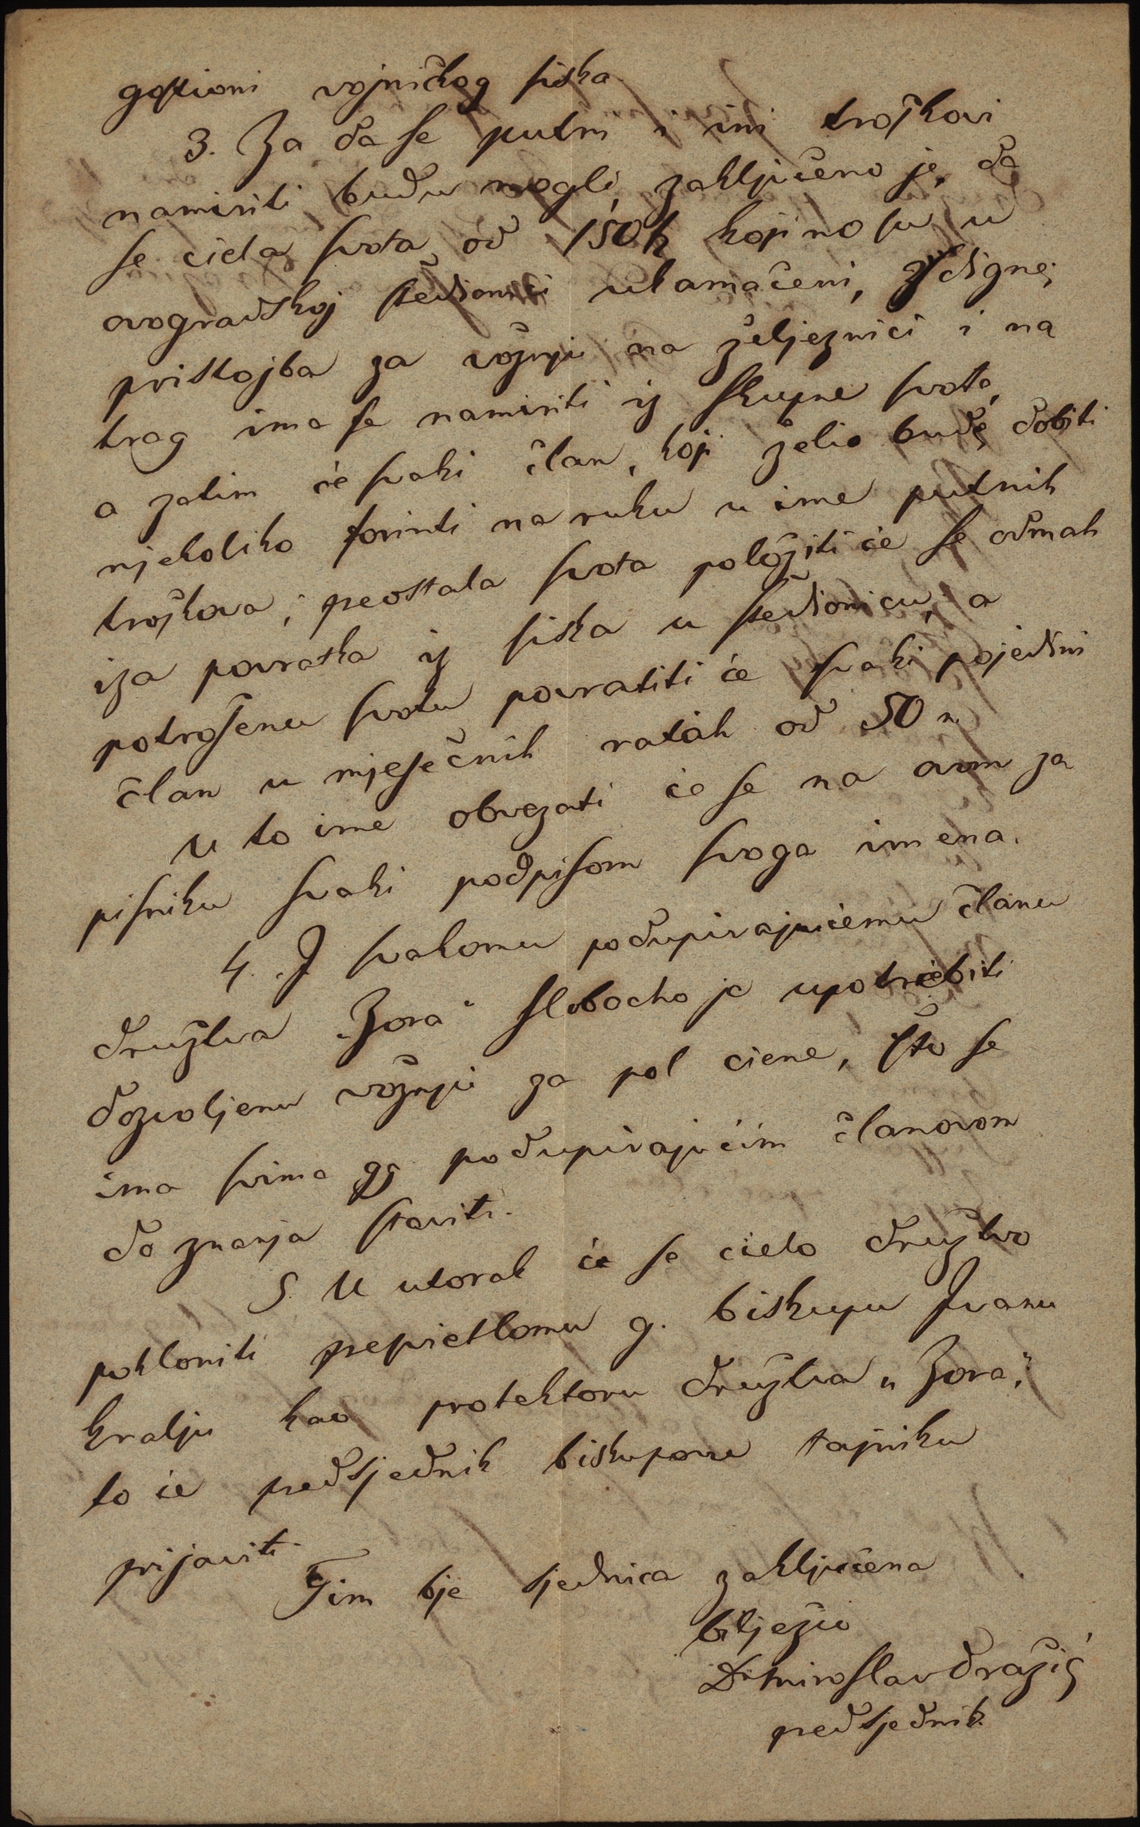 gostioni vojničkog siska.
3. Za da se putni i ini troškovi
namiriti budu mogli, zaključeno je, da
se ciela svota od 150 koji no su u
ovogradskoj štedionici ukamaćeni, digne;
pristojba za vožnju na željeznici i na
trag ima se namiriti iz skupne svote,
a zatim će svaki član, koji želio bude dobiti
njekoliko forinti na ruku u ime putnih
troškova; preostala svota položiti će se odmah
iza povratka iz siska u štedionicu, a
potrošenu svotu povratiti će svaki pojedini
član u mjesečnih ratah od 50 n.
U to ime obvezati će se na ovom za
pisniku svaki podpisom svoga imena.
4. I svakomu podupirajućemu članu
družtva „Zora“ slobodno je upotriebiti
dozvoljenu vožnju za pol ciene, što se
ima svima gg. podupirajućim članovom
do znanja staviti.
5. U utorak će se cielo družtvo
pokloniti presvietlomu g. biskupu Ivanu
kralju kao protektoru družtva „Zora“,
to će predsjednik biskupovu tajniku
prijaviti.
Tim bje sjednica zaključena
bilježio
Dr Miroslav Dražić
predsjednik.